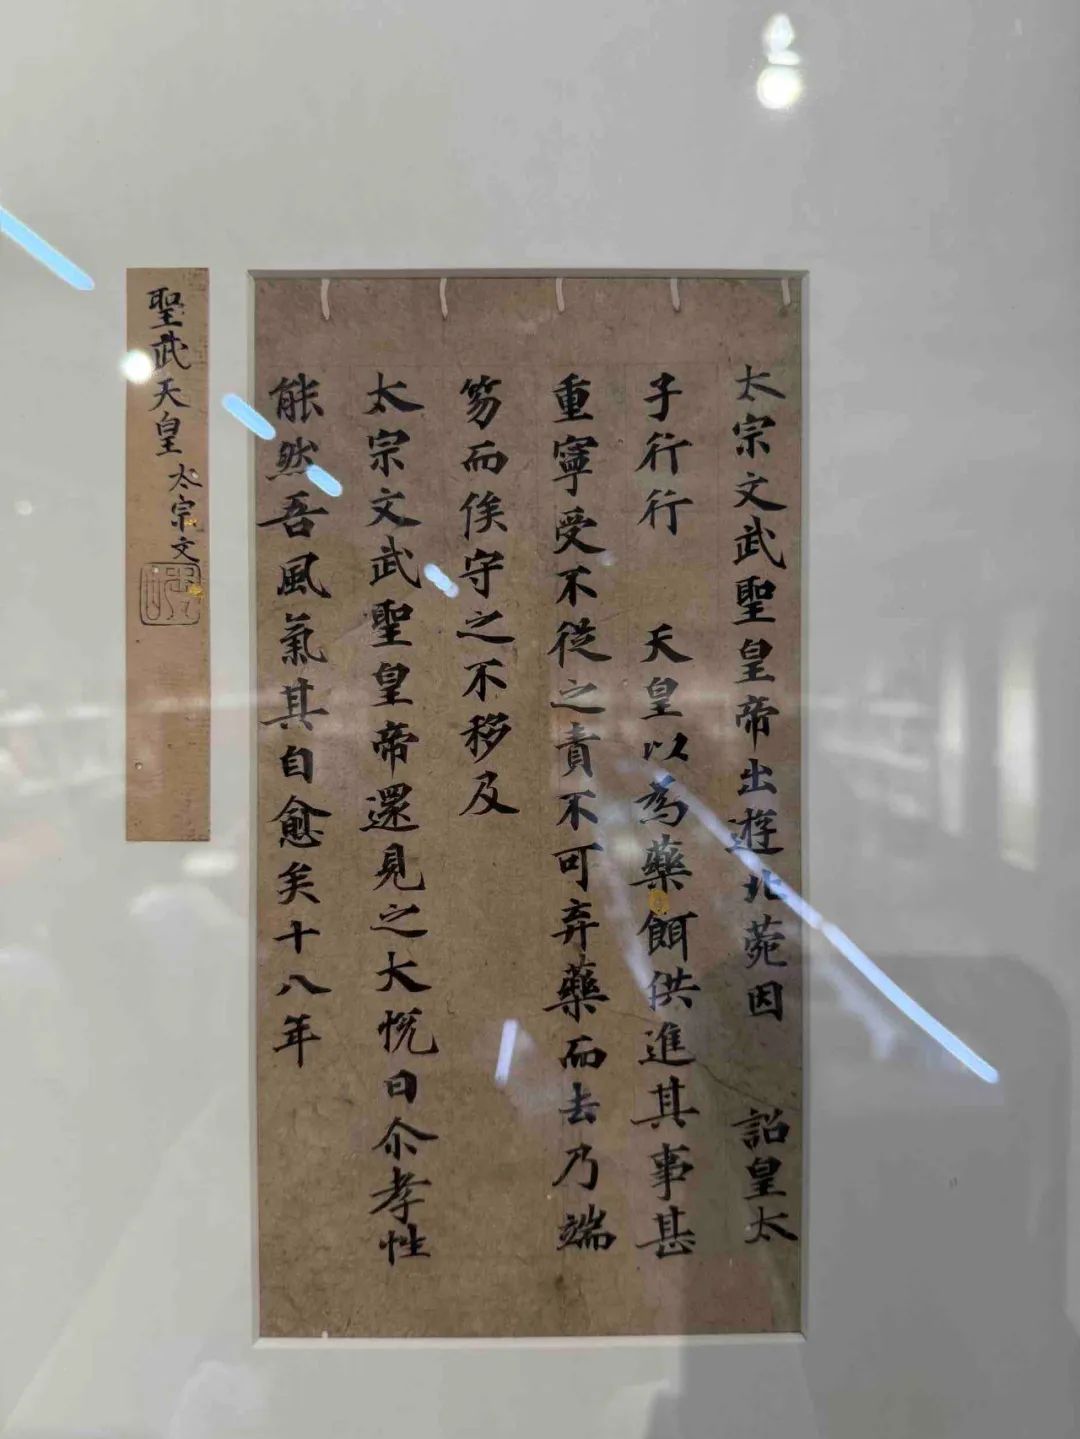 太宗文武聖皇帝出遊北菀因　詔皇太
子行行　天皇以為藥餌供進其事甚
重寧受不從之責不可弃藥而去乃端
笏而俟守之不移及
太宗文武聖皇帝還見之大悦曰尒孝性
能然吾風氣其自愈矣十八年
聖武天皇 太宗文